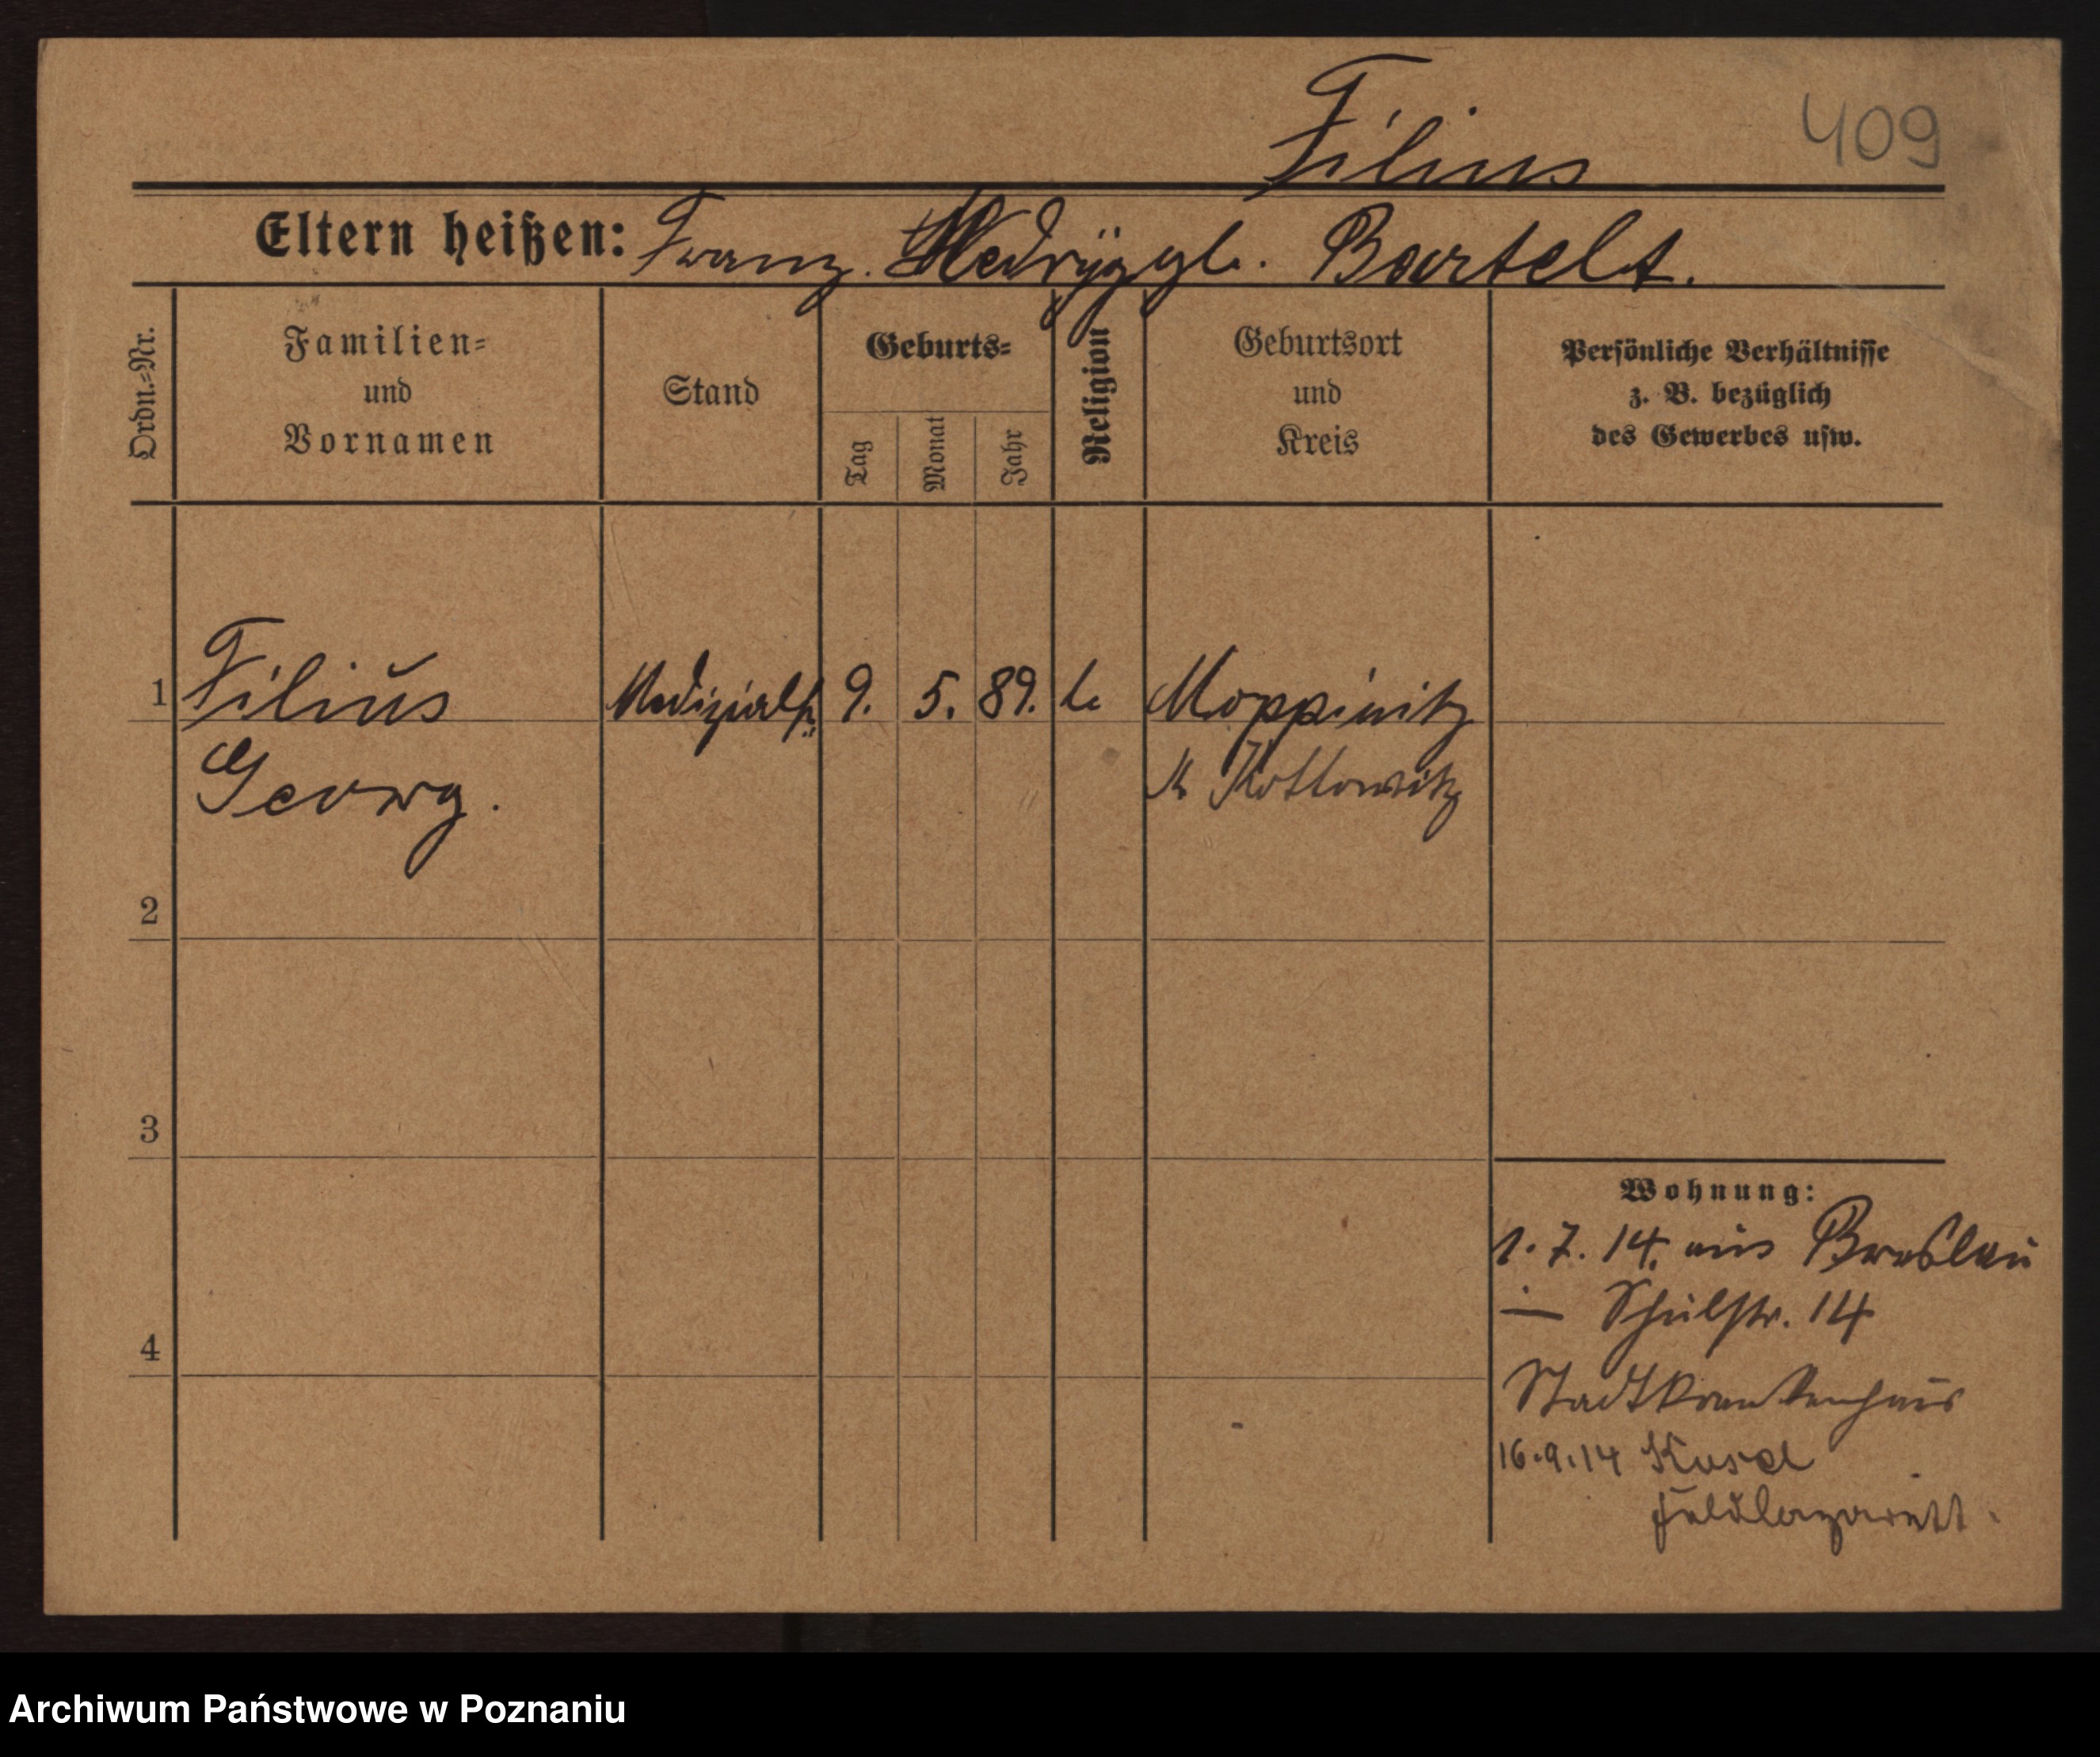 Filius
409
Eltern heißen: Franz. Bartelt.
Ordn.=Nr.
Familien=
und
Vornamen
Stand
Geburts=
Tag
Monat
Jahr
Religion
Geburtsort
und
Kreis
Persönliche Verhältnisse
z. B. bezüglich
des Gewerbes usw.
1 Filius 9. 5. 89.
Georg.
2
3
4
Wohnung:
1.7.14. aus Breslau
— Schulstr. 14
Stadtkrankenhaus
16.9.14 Kosel
Feldlazarett.
Archiwum Państwowe w Poznaniu